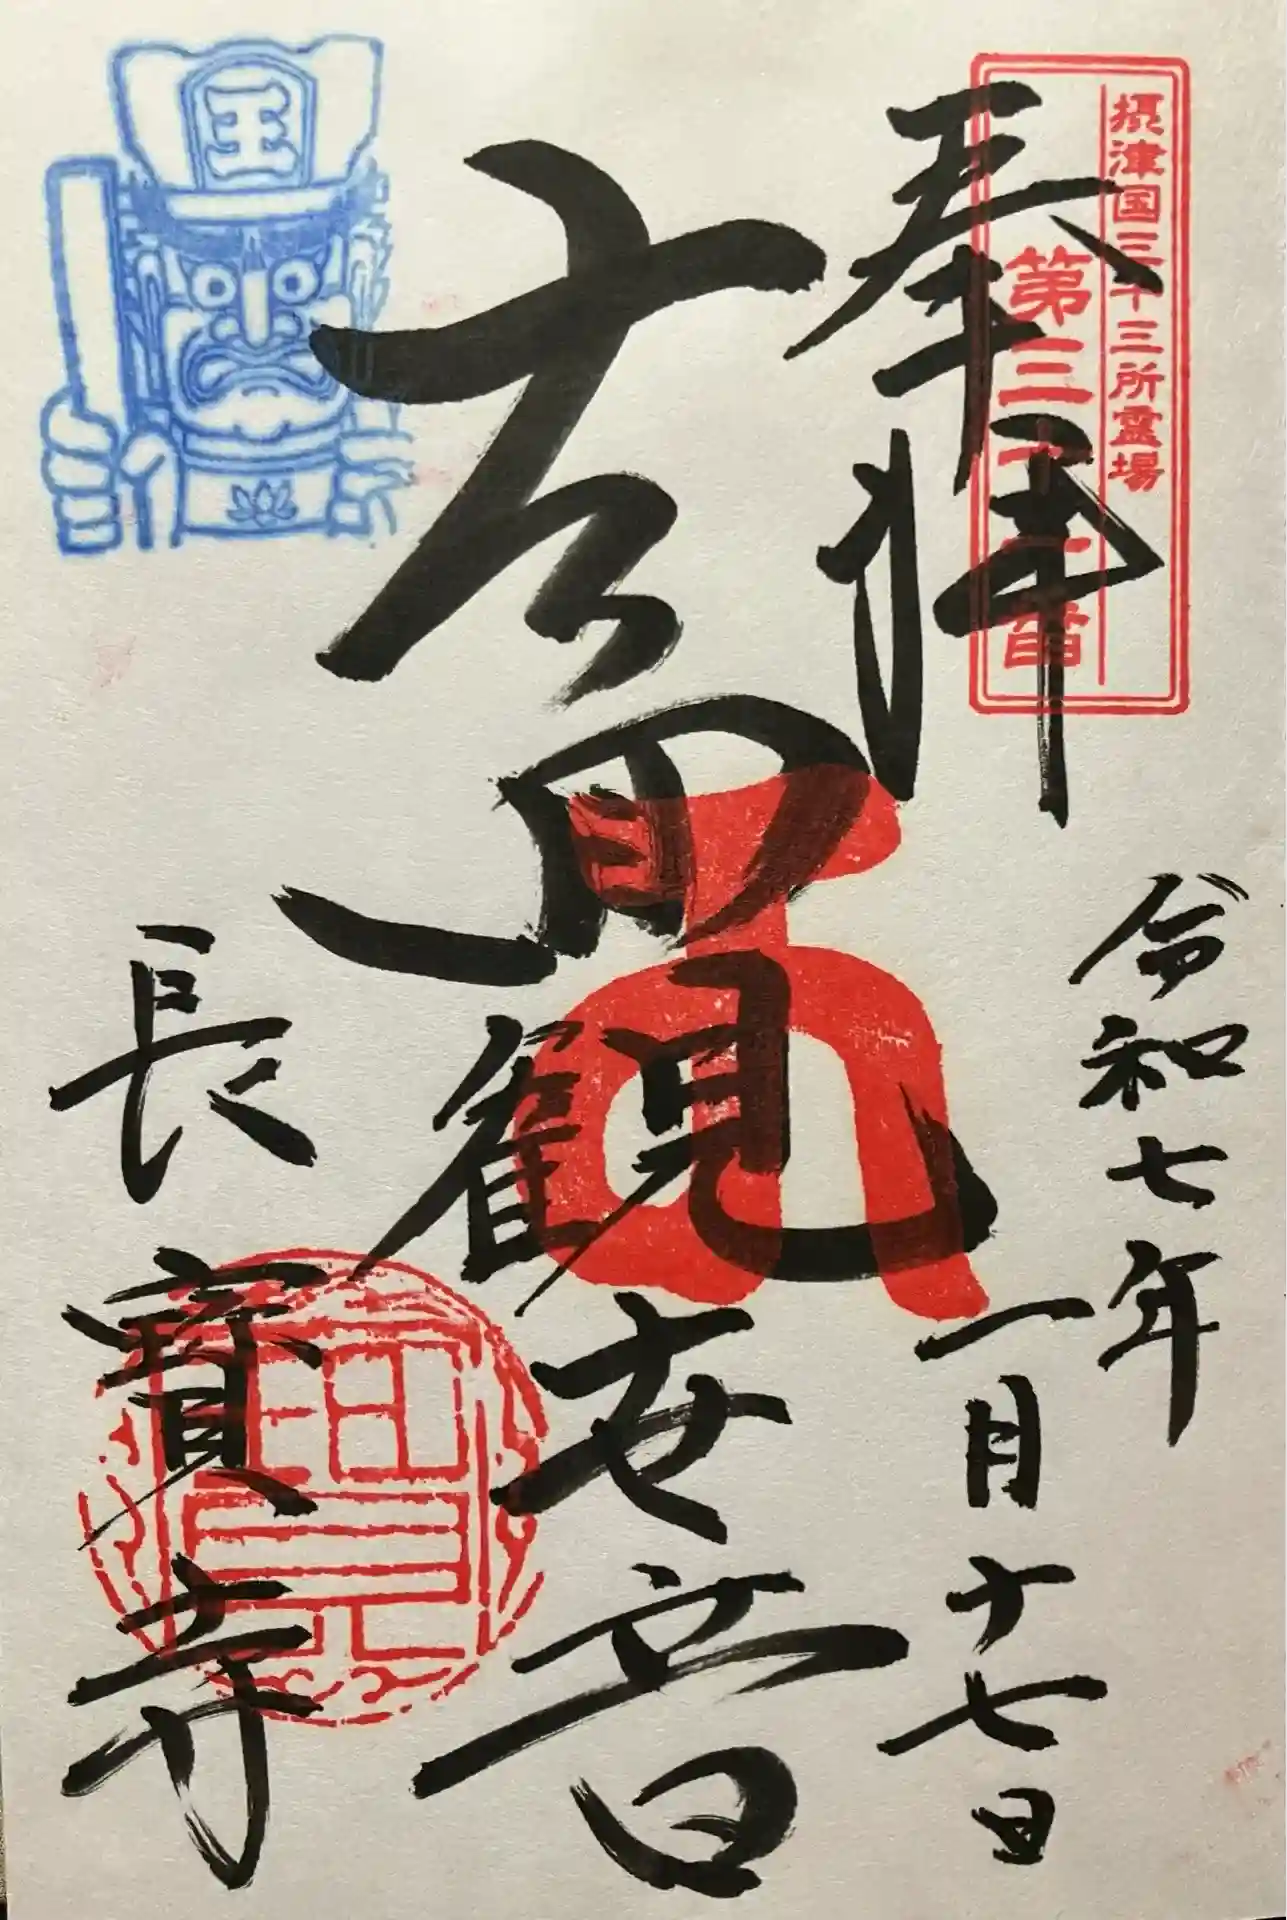 摂津国三十三所霊場
第三十一番
奉拝
令和七年
一月十七日
十一面
観世音
長寳寺
王